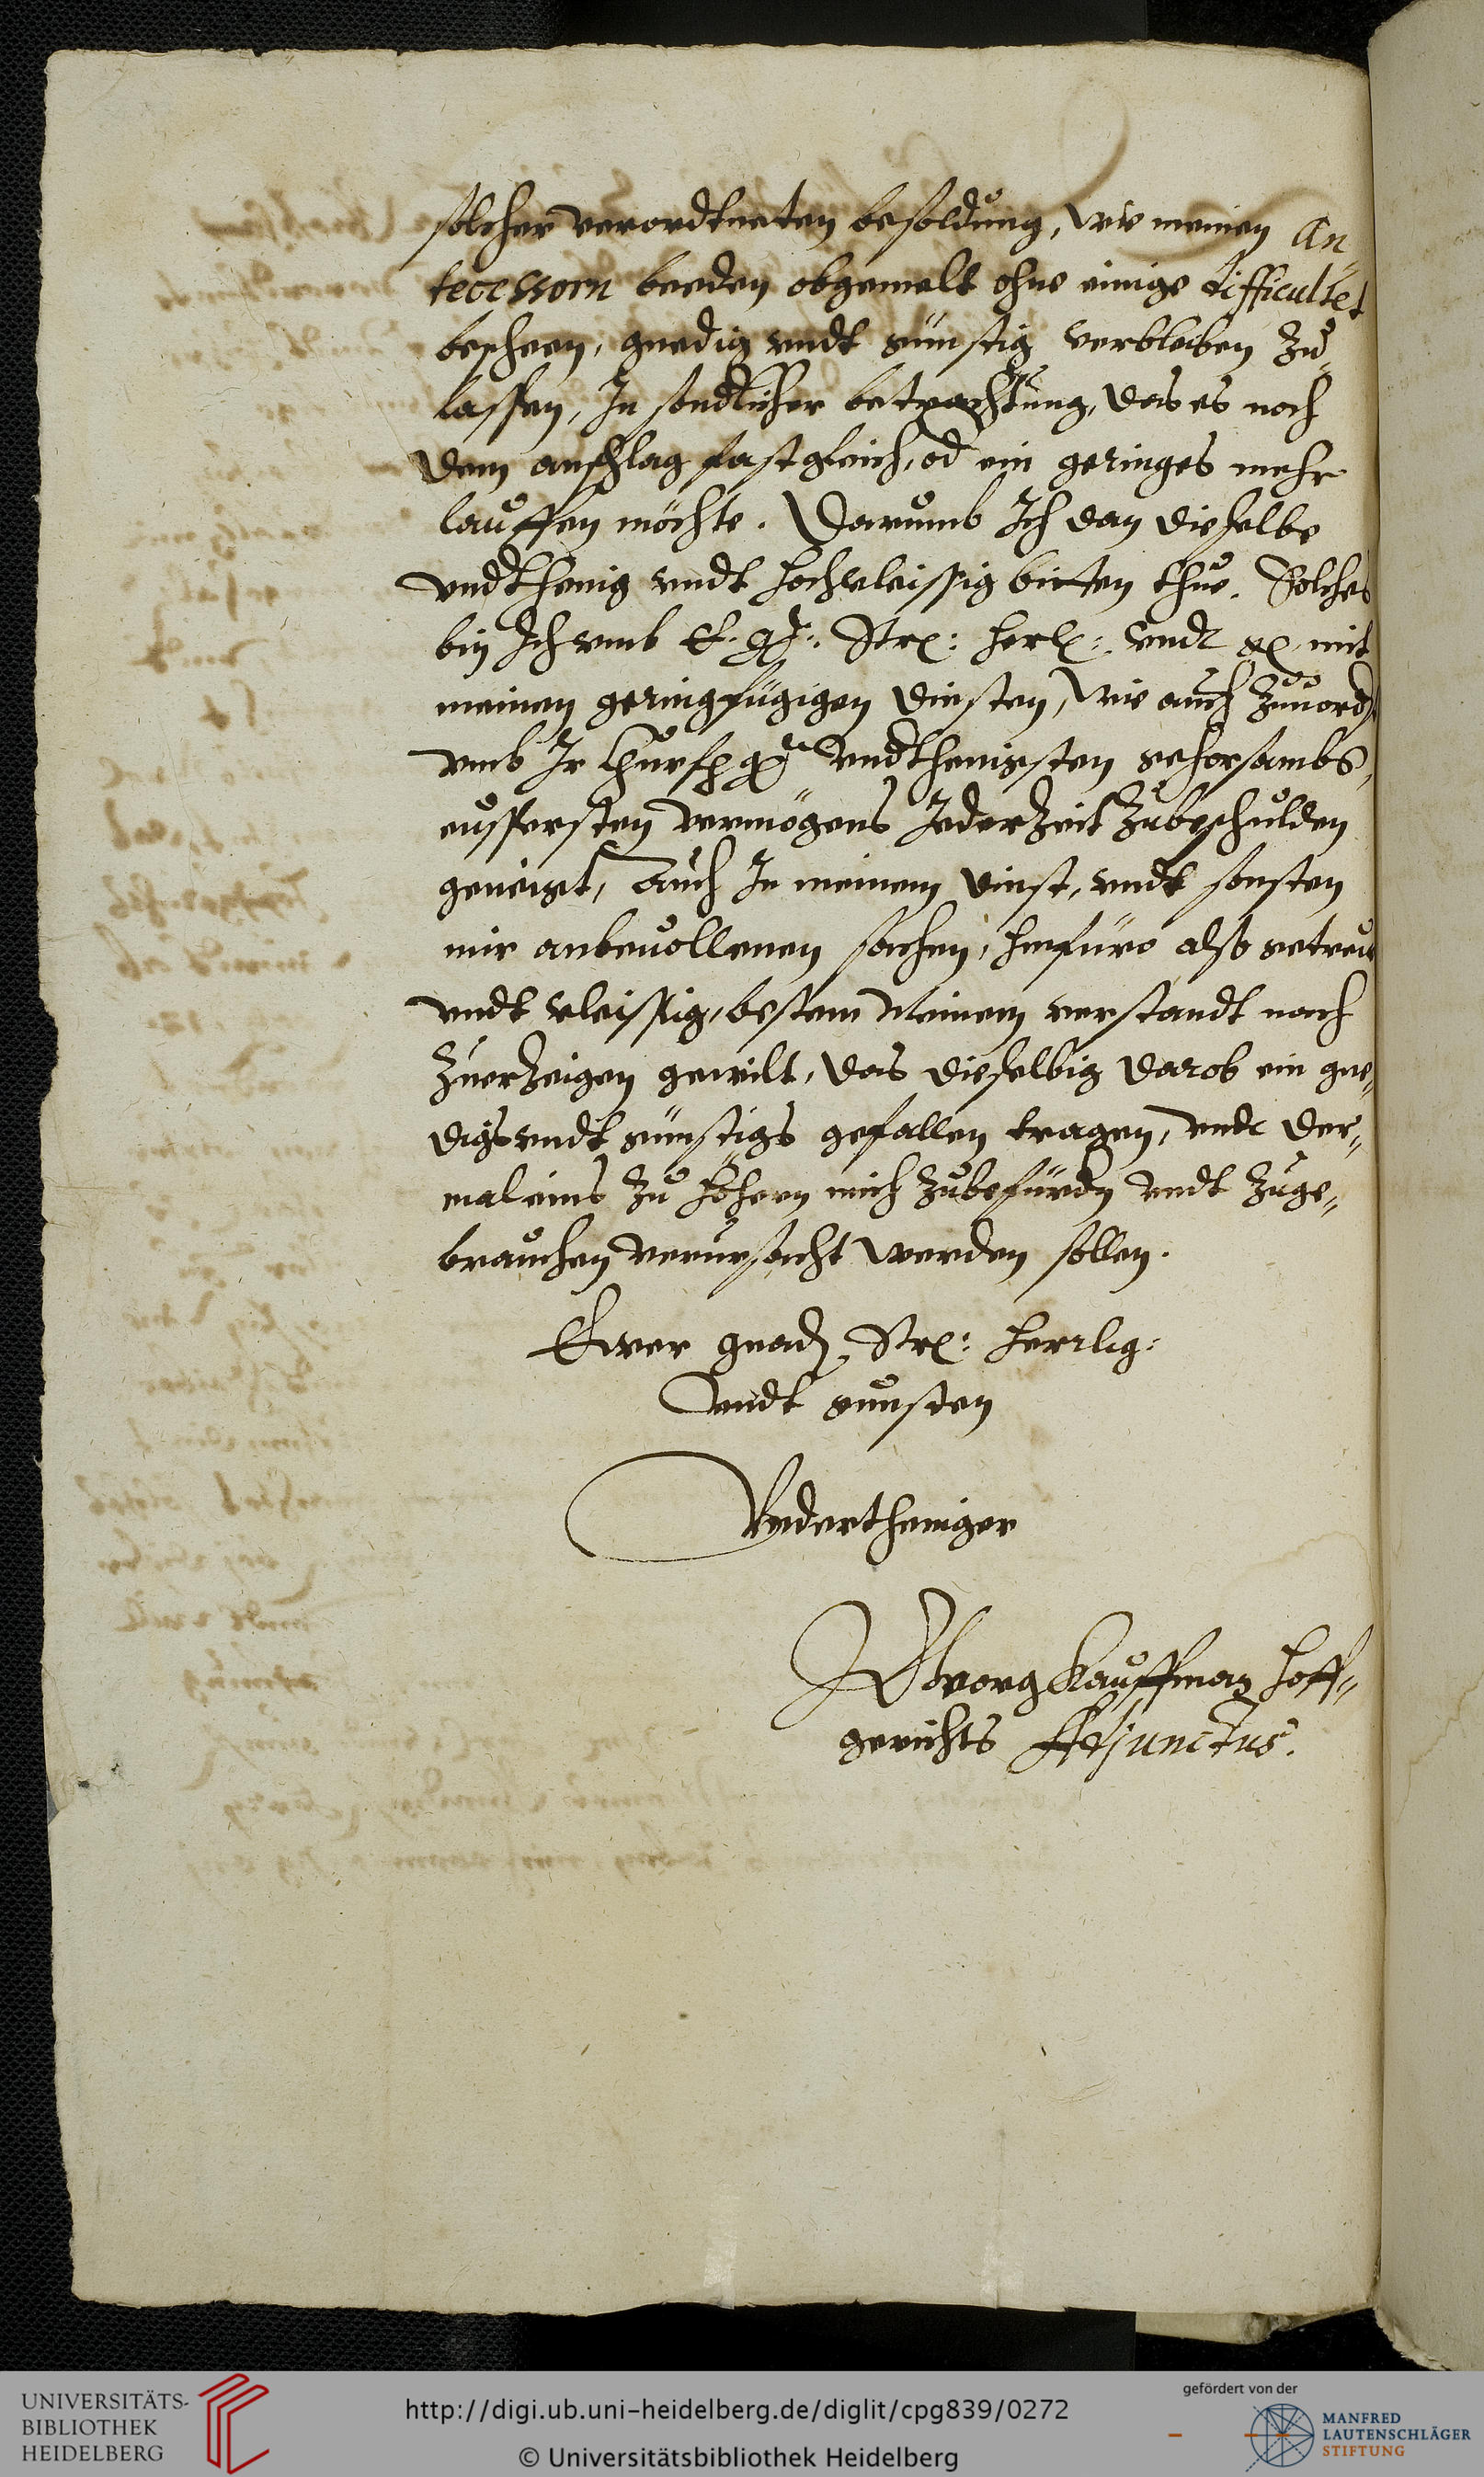 solcher verordtneten besoldung, wie meinen An
tecessorn beeden obgemelt ohne einige difficultet
bescheen, gnedig vndt günstig verbleiben zu
lassen, In sondlicher betrachtung, das es noch
dem anschlag fast gleich, od ein geringes mehr
lauffen möchte. Darumb Ich dan dieselbe
vndthenig vndt hochvleissig bitten thue. Solches
bin Ich vmb E. g. Str: herl: vndt g mit
meinen geringfügigen diensten, wie auch zuuord
vmb Ir Churf g vndthenigsten gehorsambs,
eussersten vermögens Jederzeit zubeschulden
geneigt, Auch In meinem dinst, vndt sonsten
mir anbeuollenen sachen, hinfüro also getreu
vndt vleissig, bestem meinem verstandt nach
zuerzeigen gewilt, das dieselbig darob ein gne,,
digs vndt günstigs gefallen tragen, vndt der,,
mal eins zu höhern mich zubefürdn vndt zuge,,
brauchen verursacht werden sollen.
Ewer gnad. Str: herrlig:
Vndt gunsten
Vndertheniger
Georg Kauffman hoff,,
gerichts Adjunctus.
UNIVERSITÄTS-
BIBLIOTHEK
HEIDELBERG
http://digi.ub.uni-heidelberg.de/diglit/cpg839/0272
© Universitätsbibliothek Heidelberg
gefördert von der
MANFRED
LAUTENSCHLÄGER
STIFTUNG